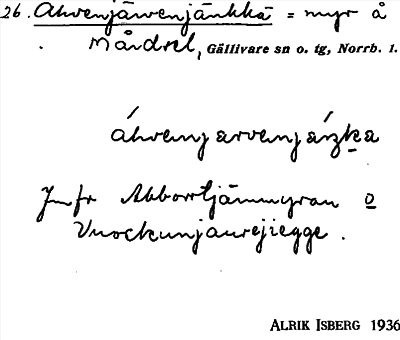 26. Ahvenjärvenjänkkä = myr å
Mårdsel, Gällivare sn o. tg, Norrb. l.
áhvenjarvenjáŋka
Jmfr Abborrtjärnmyran o
Vuockunjaurejiegge.
ALRIK ISBERG 1936